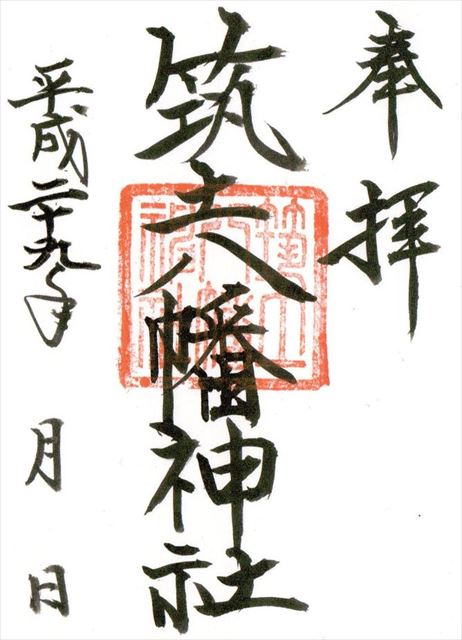 奉拝
筑土八幡神社
平成二十九年 月 日